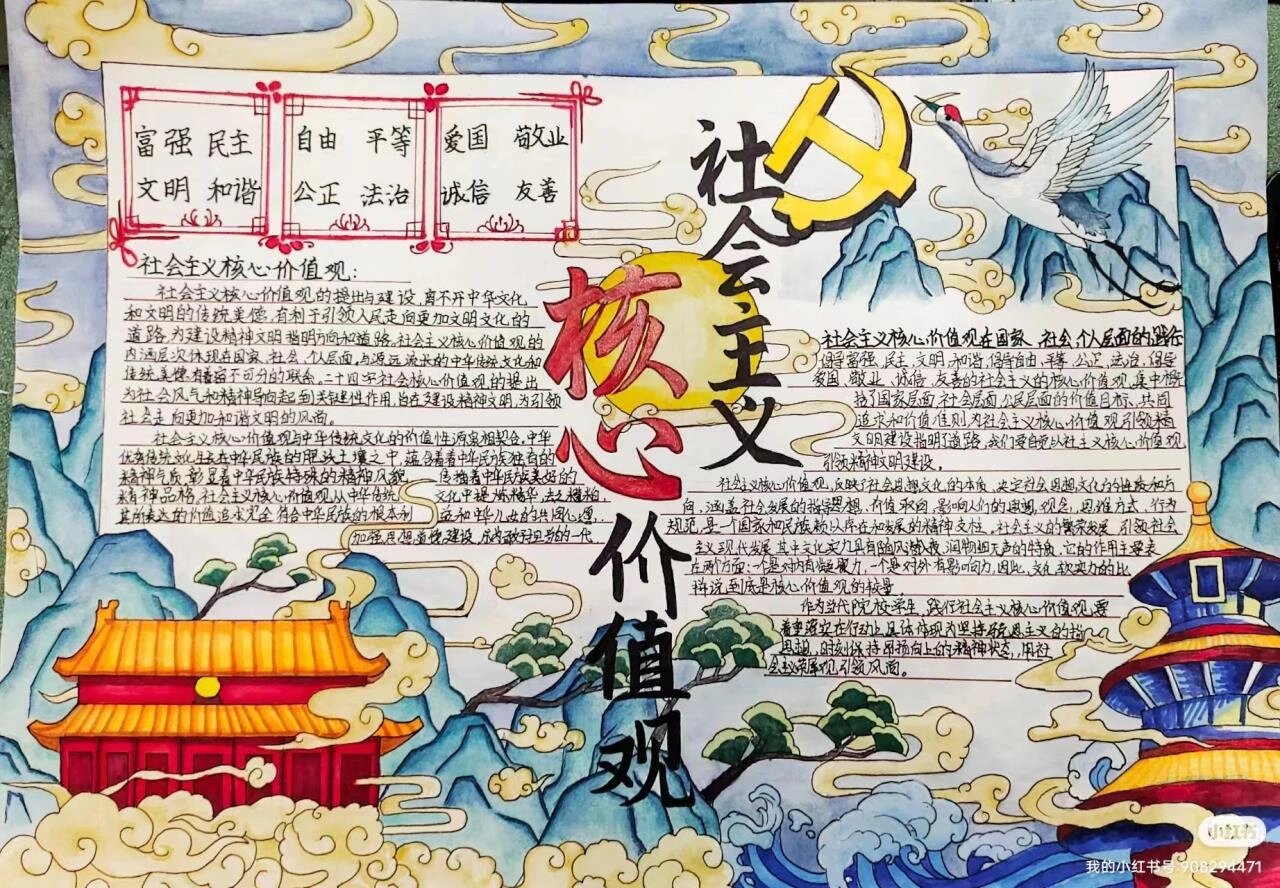 富强 民主
文明 和谐
自由 平等
公正 法治
爱国 敬业
诚信 友善
社会主义
核心价值观
社会主义核心价值观:
社会主义核心价值观的提出与建设,离不开中华文化
和文明的传统美德,有利于引领人民走向更加文明文化的
道路,为建设精神文明指明方向和道路.社会主义核心价值观的
内涵层次体现在国家、社会、个人层面,与源远流长的中华传统文化和
传统美德有着密不可分的联系。二十四字社会核心价值观的提出
为社会风气和精神导向起到关键性作用,旨在建设精神文明,为引领
社会走向更加和谐文明的风面。
社会主义核心价值观与中华传统文化的价值性源泉相契合,中华
优秀传统文化生长在中华民族的肥沃土壤之中,蕴含着着中华民族独有的
精神气质,彰显着中华民族特殊的精神风貌,
传播着中华民族美好的
精神品格,社会主义核心价值观从中华传统
文化中提炼精华,去之糟粕,
其所表达的价值追求完全符合中华民族的根本利
益和中华儿女的共同心愿,
加强思想道德建设,
社会主义核心价值观在国家、社会、个人层面的践行
倡导富强、民主、文明、和谐,倡导自由、平等、公正、法治,倡导
爱国、敬业、诚信、友善的社会主义的核心价值观,集中概
括了国家层面,社会层面,公民层面的价值目标、共同
追求和价值准则,为社会主义核心价值观引领精
文明建设指明了道路,我们要自觉以社会主义核心价值观
引领精神文明建设。
社会主义核心价值观,反映了社会思想文化的本质,决定社会思想文化的性质和方
向,涵盖社会发展的指导思想,价值取向,影响人们的思想,观念,思维方式,行为
规范,是一个国家和民族赖以存在和发展的精神支柱。社会主义的繁荣发展,引领社会
主义现代发展,其中文化实力具有随风潜入夜,润物细无声的特质,它的作用主要表
在两个方面:一个是对内有凝聚力,一个是对外有影响力,因此,文化软实力的比
拼说到底是核心价值观的较量。
作为当代院校学生,践行社会主义核心价值观,要
着重落实在行动上,具体体现为坚持马克思主义的指
思想,时刻保持昂扬向上的精神状态,用社
会主义荣辱观引领风面。
小红书
我的小红书号:908294471